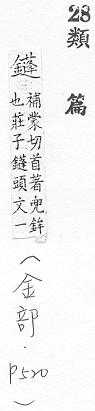 28類 篇
鑝
補蒙切首著兜鉾
也莊子鑝頭文一
(金部·p520)